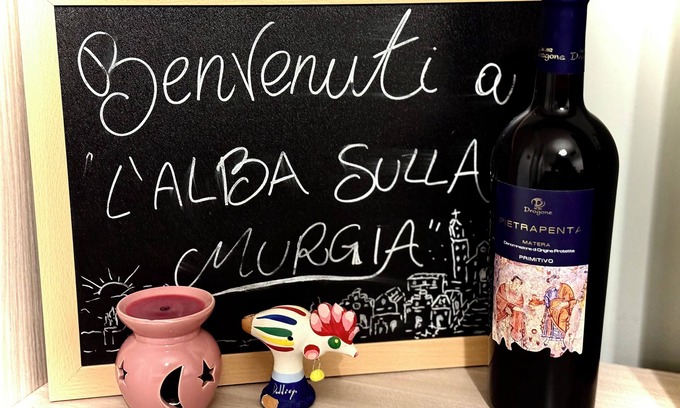 Benvenuti a
"L'ALBA SULLA
MURGIA"
Dragone
Dragone
PIETRAPENTA
MATERA
Denominazione di Origine Protetta
PRIMITIVO